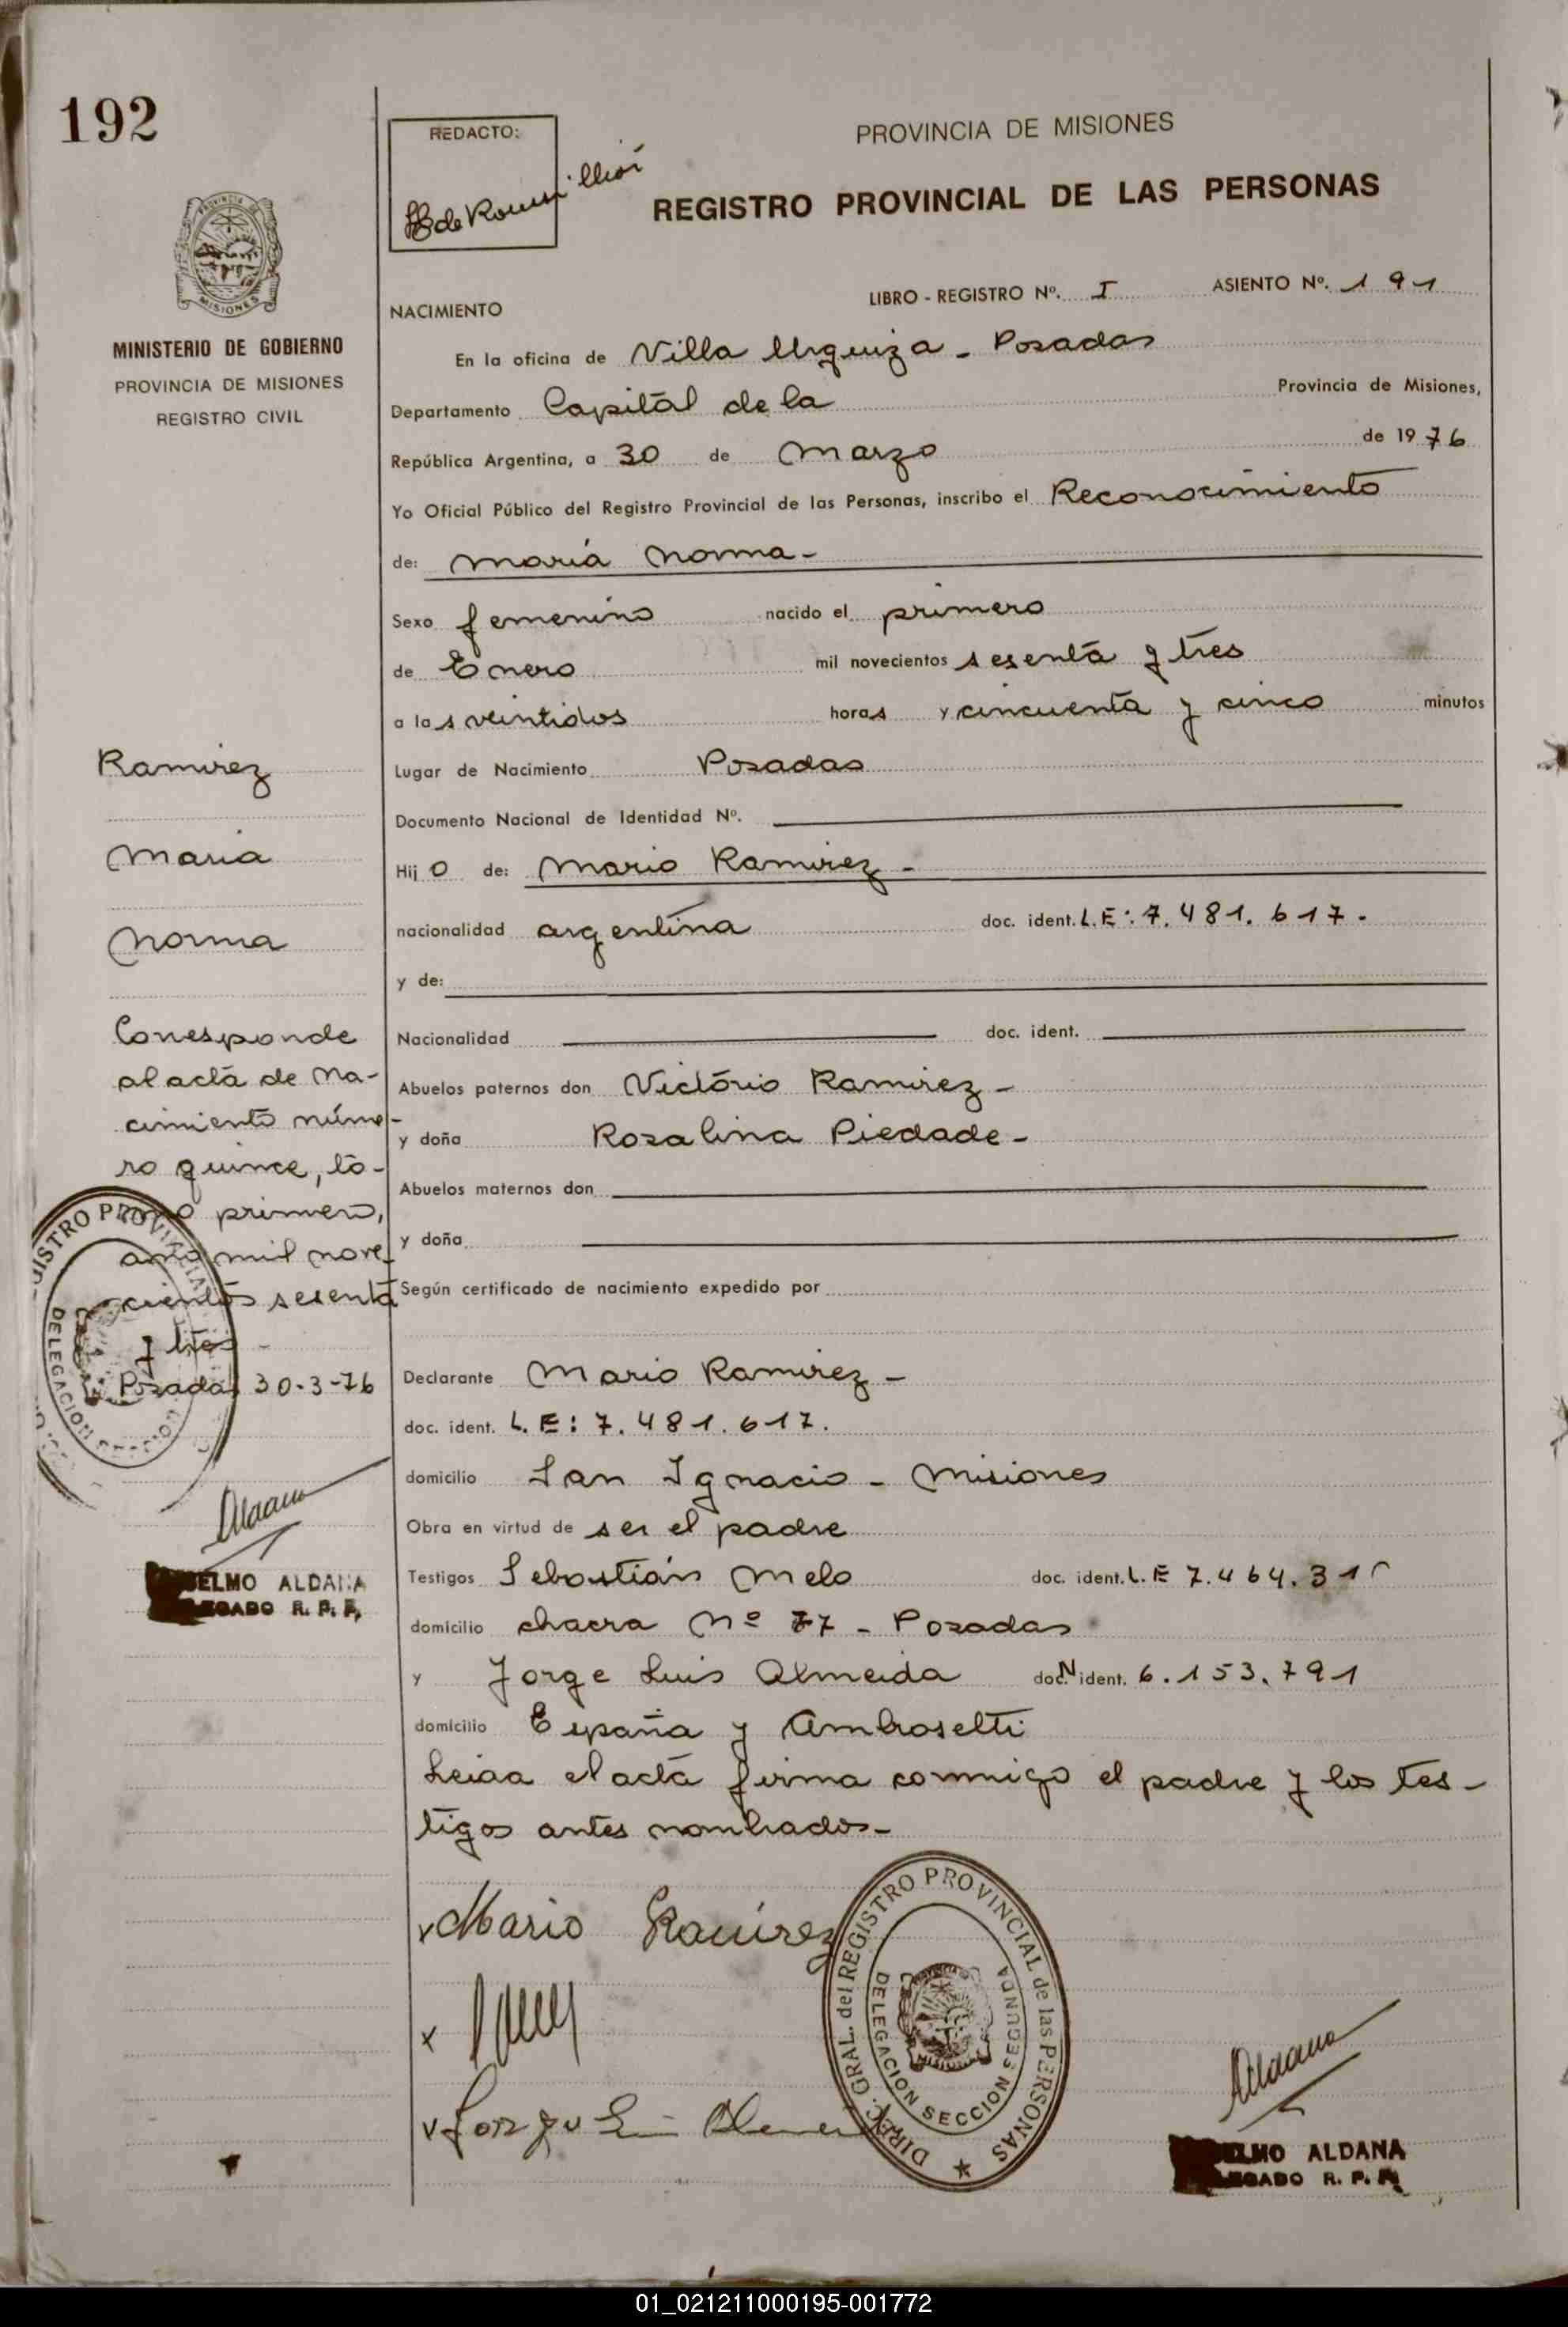 192
REDACTO:
PROVINCIA DE MISIONES
REGISTRO PROVINCIAL DE LAS PERSONAS
MISIONES
MINISTERIO DE GOBIERNO
PROVINCIA DE MISIONES
REGISTRO CIVIL
LIBRO - REGISTRO Nº. I ASIENTO Nº. 191
NACIMIENTO
En la oficina de Villa Urquiza - Posadas
Departamento Capital de la Provincia de Misiones,
República Argentina, a 30 de Marzo de 1976
Yo Oficial Público del Registro Provincial de las Personas, inscribo el Reconocimiento
de: María Norma -
Sexo femenino nacido el primero
de Enero mil novecientos sesenta y tres
a las veintidos horas y cincuenta y cinco minutos
Lugar de Nacimiento Posadas
Documento Nacional de Identidad Nº.
Hijo de: Mario Ramirez -
nacionalidad argentina doc. ident. L.E: 7.481.617.
y de:
Nacionalidad doc. ident.
Abuelos paternos don Victorio Ramirez -
y doña Rosalina Piedade -
Abuelos maternos don
y doña
Según certificado de nacimiento expedido por
Declarante Mario Ramirez -
doc. ident. L.E: 7.481.617.
domicilio San Ignacio - Misiones
Obra en virtud de ser el padre
Testigos Sebastián Melo doc. ident. L.E 7.464.31
domicilio chacra Nº 77 - Posadas
y Jorge Luis Almeida doc. N ident. 6.153.791
domicilio España y Ambrosetti
Leida el acta firma conmigo el padre y los tes-
tigos antes nombrados -
Ramirez
Maria
Norma
Corresponde
al acta de Na-
cimiento núme-
ro quince, to-
mo primero,
año mil nove-
cientos sesenta
y tres -
Posadas 30-3-76
ELMO ALDANA
EGADO R. P. P.
x Mario Ramirez
x
DIREC. GRAL. del REGISTRO PROVINCIAL de las PERSONAS
DELEGACION SECCION SEGUNDA
Aldana
ELMO ALDANA
EGADO R. P. P.
01_021211000195-001772